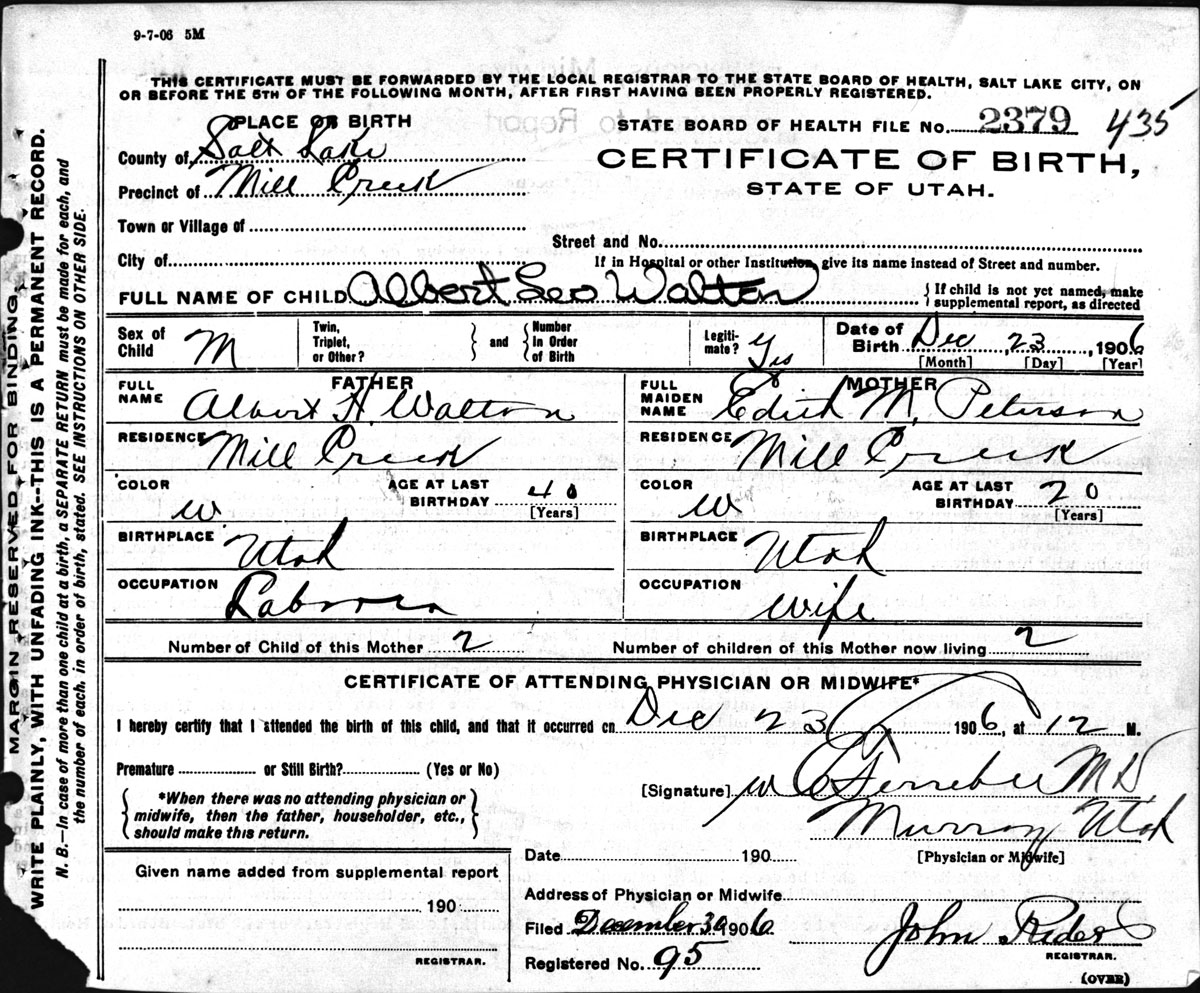 9-7-06 5M
THIS CERTIFICATE MUST BE FORWARDED BY THE LOCAL REGISTRAR TO THE STATE BOARD OF HEALTH, SALT LAKE CITY, ON
OR BEFORE THE 5TH OF THE FOLLOWING MONTH, AFTER FIRST HAVING BEEN PROPERLY REGISTERED.
PLACE OR BIRTH
STATE BOARD OF HEALTH FILE No. 2379 435
County of Salt Lake
CERTIFICATE OF BIRTH,
Precinct of Mill Creek
STATE OF UTAH.
Town or Village of
Street and No.
City of
If in Hospital or other Institution, give its name instead of Street and number.
FULL NAME OF CHILD Albert Leo Walton { If child is not yet named, make supplemental report, as directed
Sex of Child M Twin, Triplet, or Other? } and { Number In Order of Birth Legiti-mate? Yes Date of Birth Dec, 23, 1906
[Month] [Day] [Year]
FATHER
FULL NAME Albert H. Walton
RESIDENCE Mill Creek
COLOR W. AGE AT LAST BIRTHDAY 40
[Years]
BIRTHPLACE Utah
OCCUPATION Laborer
MOTHER
FULL MAIDEN NAME Edith M. Peterson
RESIDENCE Mill Creek
COLOR W AGE AT LAST BIRTHDAY 20
[Years]
BIRTHPLACE Utah
OCCUPATION Wife
Number of Child of this Mother 2 Number of children of this Mother now living 2
CERTIFICATE OF ATTENDING PHYSICIAN OR MIDWIFE*
I hereby certify that I attended the birth of this child, and that it occurred on Dec 23 1906, at 12 M.
Premature or Still Birth? (Yes or No)
{ *When there was no attending physician or
midwife, then the father, householder, etc.,
should make this return. }
[Signature] M D
Murray Utah
[Physician or Midwife]
Date 190
Given name added from supplemental report
190
REGISTRAR.
Address of Physician or Midwife
Filed December 30 1906 John Rider
REGISTRAR.
Registered No. 95
(OVER)
MARGIN RESERVED FOR BINDING.
WRITE PLAINLY, WITH UNFADING INK--THIS IS A PERMANENT RECORD.
N. B.—In case of more than one child at a birth, a SEPARATE RETURN must be made for each, and
the number of each, in order of birth, stated. SEE INSTRUCTIONS ON OTHER SIDE.